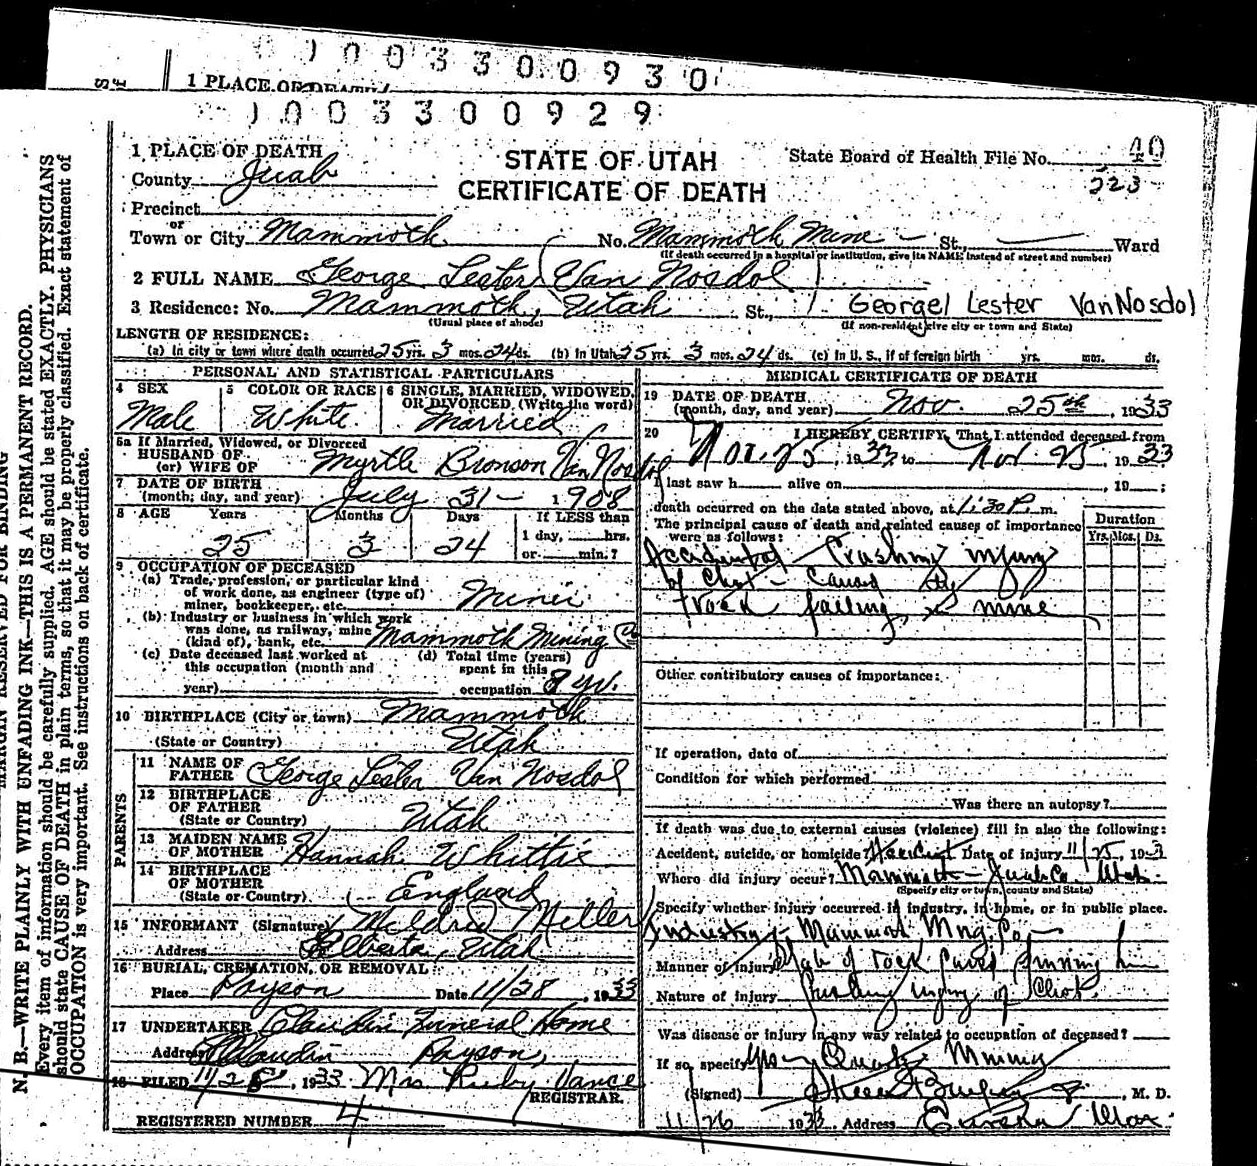 1003300930
1 PLACE OF DEATH
1003300929
1 PLACE OF DEATH
STATE OF UTAH
CERTIFICATE OF DEATH
State Board of Health File No. 40
223
County Juab
Precinct
or
Town or City Mammoth No. Mammoth Mine St., Ward
(If death occurred in a hospital or institution, give its NAME instead of street and number)
2 FULL NAME George Lester Van Nosdol
3 Residence: No. Mammoth, Utah St., Georgel Lester VanNosdol
(Usual place of abode) (If non-resident give city or town and State)
LENGTH OF RESIDENCE:
(a) In city or town where death occurred 25 yrs. 3 mos. 24 ds. (b) In Utah 25 yrs. 3 mos. 24 ds. (c) In U. S., if of foreign birth yrs. mos. ds.
PERSONAL AND STATISTICAL PARTICULARS
4 SEX 5 COLOR OR RACE 6 SINGLE, MARRIED, WIDOWED, OR DIVORCED (Write the word)
Male White Married
5a If Married, Widowed, or Divorced
HUSBAND OF
(or) WIFE OF Myrtle Bronson Van Nosdol
7 DATE OF BIRTH
(month; day, and year) July 31 - 1908
8 AGE Years Months Days If LESS than
1 day, hrs.
25 3 24 or min.?
9 OCCUPATION OF DECEASED
(a) Trade, profession, or particular kind
of work done, as engineer (type of)
miner, bookkeeper, etc. Miner
(b) Industry or business in which work
was done, as railway, mine
(kind of), bank, etc. Mammoth Mining Co
(c) Date deceased last worked at
this occupation (month and
year)
(d) Total time (years)
spent in this
occupation 8 yr.
10 BIRTHPLACE (City or town) Mammoth
(State or Country) Utah
PARENTS
11 NAME OF
FATHER George Lester Van Nosdol
12 BIRTHPLACE
OF FATHER
(State or Country) Utah
13 MAIDEN NAME
OF MOTHER Hannah Whittie
14 BIRTHPLACE
OF MOTHER
(State or Country) England
15 INFORMANT (Signature) Mildred Miller
Address Elberta, Utah
16 BURIAL, CREMATION, OR REMOVAL
Place Payson Date 11/28, 1933
17 UNDERTAKER Claudin Funeral Home
Address Claudin Payson,
18 FILED 11/28, 1933 Mrs Ruby Vance
REGISTRAR.
REGISTERED NUMBER 4
MEDICAL CERTIFICATE OF DEATH
19 DATE OF DEATH
(month, day, and year) Nov. 25th, 1933
20 I HEREBY CERTIFY, That I attended deceased from
Nov. 25, 1933, to Nov 25, 1933
I last saw h alive on , 19 ;
death occurred on the date stated above, at 1:30 P. m.
The principal cause of death and related causes of importance
were as follows:
Duration
Yrs. Mos. Ds.
Accidental Crushing injury
of Chest - caused by
rock falling in mine
Other contributory causes of importance:
If operation, date of
Condition for which performed
Was there an autopsy?
If death was due to external causes (violence) fill in also the following:
Accident, suicide, or homicide? Accident Date of injury 11/25, 1933
Where did injury occur? Mammoth - Juab Co Utah
(Specify city or town, county and State)
Specify whether injury occurred in industry, in home, or in public place.
Industry - Mammoth Mng. Co
Manner of injury Slab of rock caved pinning him
Nature of injury Crushing injury of Chest
Was disease or injury in any way related to occupation of deceased?
If so, specify yes - Quartz Mining
(Signed) , M. D.
11/26 1933 Address Eureka Utah
MARGIN RESERVED FOR BINDING
N. B.—WRITE PLAINLY WITH UNFADING INK—THIS IS A PERMANENT RECORD.
Every item of information should be carefully supplied. AGE should be stated EXACTLY. PHYSICIANS
should state CAUSE OF DEATH in plain terms, so that it may be properly classified. Exact statement of
OCCUPATION is very important. See instructions on back of certificate.